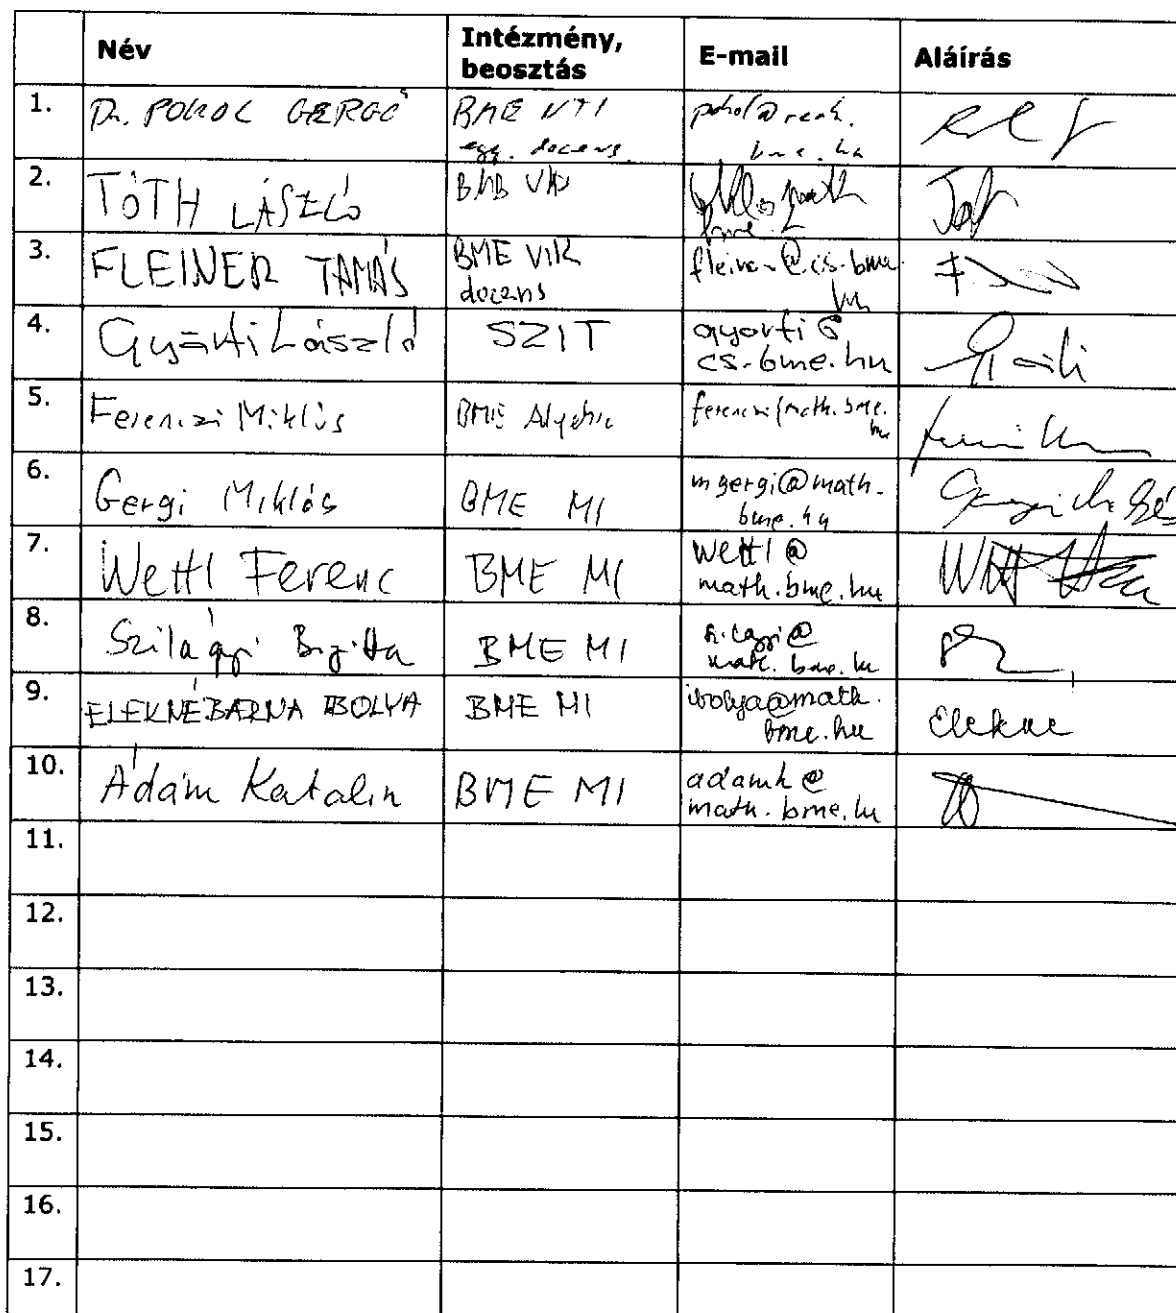 Név Intézmény, beosztás E-mail Aláírás
1. Dr. POKOL GERGŐ BME NTI egy. docens. pokol@reak.bme.hu
2. TÓTH LÁSZLÓ BME
3. FLEINER TAMÁS BME VIK docens fleiner@cs.bme.hu
4. Györfi László SZIT gyorfi@cs.bme.hu
5. Ferenczi Miklós BME Algebra ferenczi@math.bme.hu
6. Gergi Miklós BME MI mgergi@math.bme.hu
7. Wettl Ferenc BME MI wettl@math.bme.hu
8. Szilágyi Brigitta BME MI szilagyi@math.bme.hu
9. ELEKNÉ BARNA IBOLYA BME MI ibolya@math.bme.hu Elekne
10. Ádám Katalin BME MI adamk@math.bme.hu
11.
12.
13.
14.
15.
16.
17.